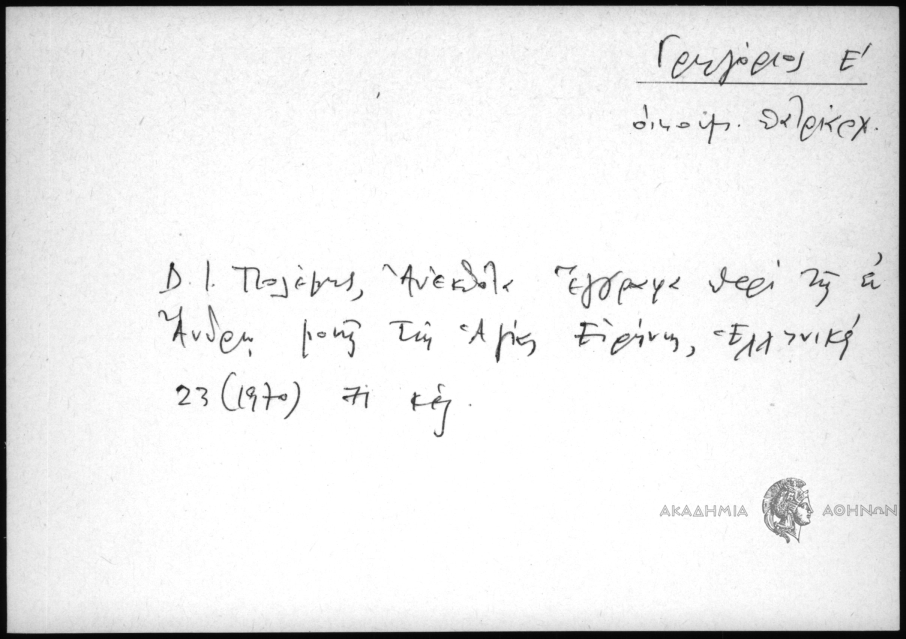 Γρηγόριος Ε'
οἰκουμ. πατριάρχ.
D. I. Πολέμης, Ἀνέκδοτα Ἔγγραφα περὶ τῆς ἐν
Ἄνδρῳ μονῆς τῆς Ἁγίας Εἰρήνης, Ἑλληνικά
23 (1970) 71 κἑξ.
ΑΚΑΔΗΜΙΑ ΑΘΗΝΩΝ